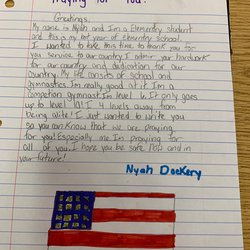 Praying For You!
Greetings,
My name is Nyah and I'm a Elementary student
and this is my last year of elementary school.
I wanted to take this time to thank you for
you service to our country I admir your hardwork
for our country and dedication for our
Country. My life consists of school and
Gymnastics Im really good at it Im a
Competion gymnast Im level 6. It only goes
up to level 10! I 4 levels away from
being elite! I Just wanted to write you
so you can know that we are praying
for you! Especially me Im praying for
all of you. I hope you be safe now and in
your future!
Nyah Dockery